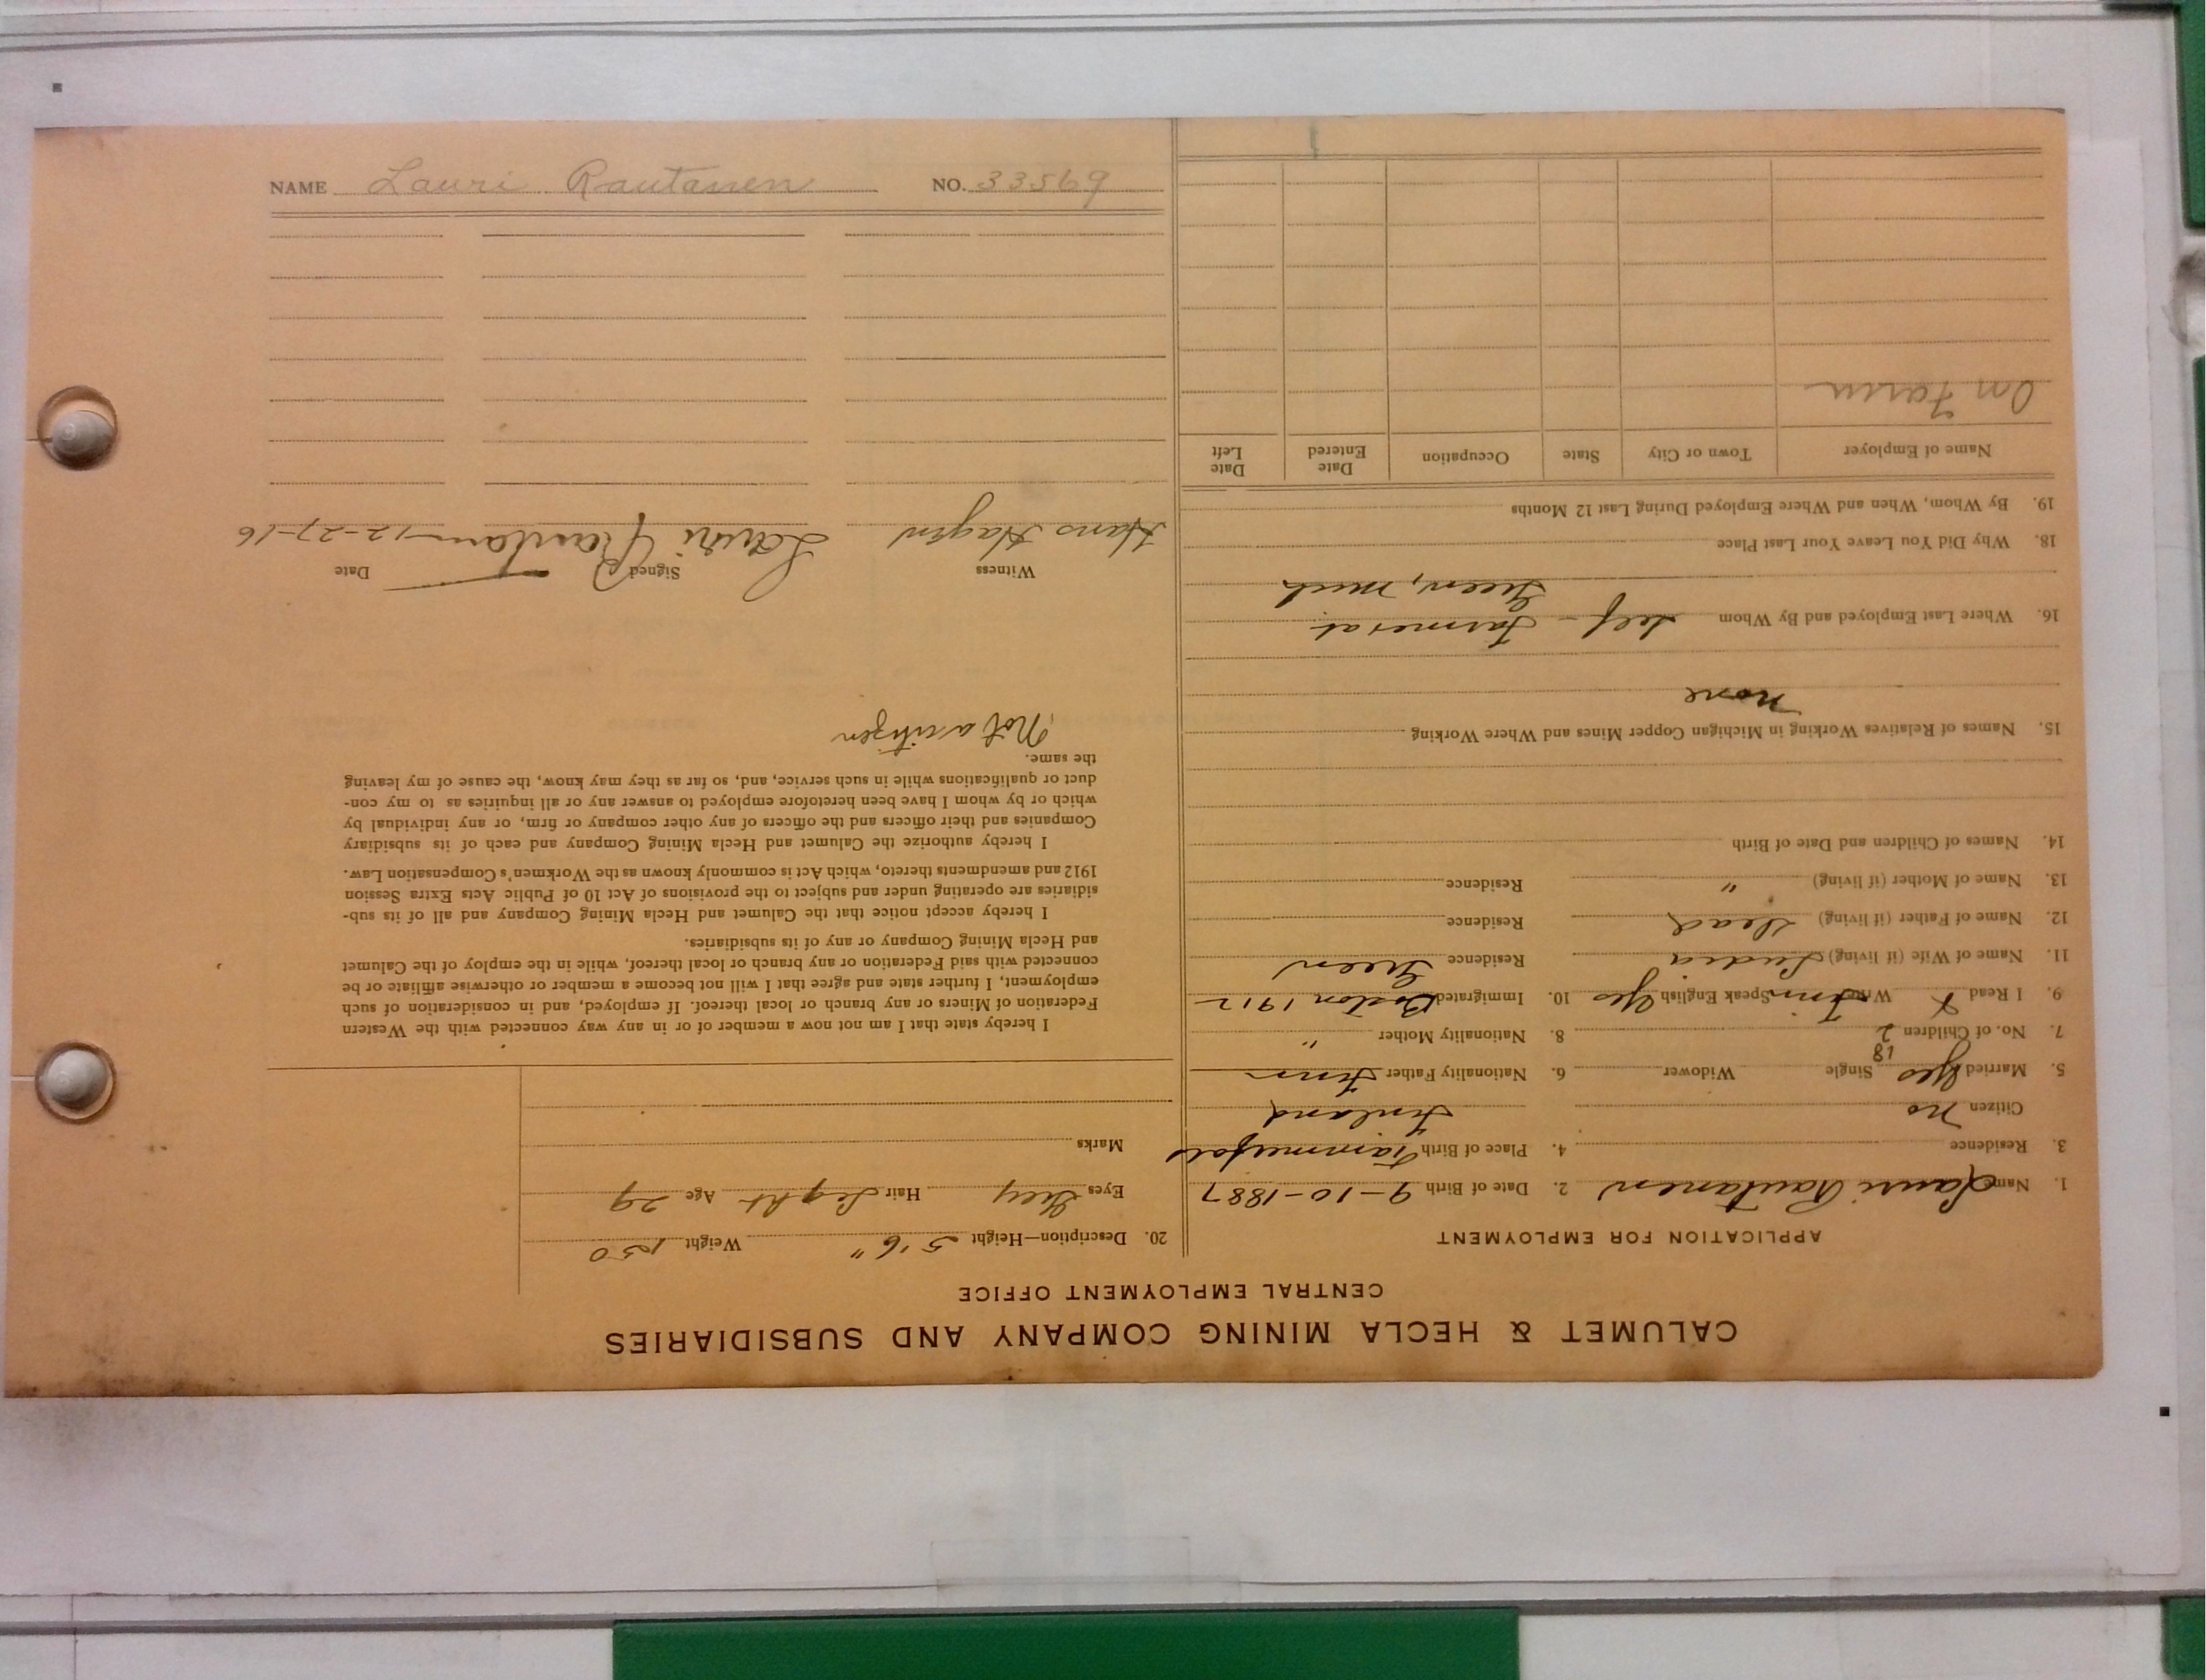 CALUMET & HECLA MINING COMPANY AND SUBSIDIARIES
CENTRAL EMPLOYMENT OFFICE
APPLICATION FOR EMPLOYMENT
1. Name Lauri Rautanen 2. Date of Birth 9-10-1887
3. Residence 4. Place of Birth
Citizen no Finland
5. Married Yes Single Widower 6. Nationality Father Finn
18
7. No. of Children 2 8. Nationality Mother "
9. I Read X Write Finn Speak English Yes 10. Immigrated Boston 1912
11. Name of Wife (if living) Lydia Residence Green
12. Name of Father (if living) Dead Residence
13. Name of Mother (if living) " Residence
14. Names of Children and Date of Birth
15. Names of Relatives Working in Michigan Copper Mines and Where Working
none
16. Where Last Employed and By Whom Self - Farmer at
Green, Mich
18. Why Did You Leave Your Last Place
19. By Whom, When and Where Employed During Last 12 Months
Name of Employer Town or City State Occupation Date Entered Date Left
On Farm
20. Description—Height 5'6" Weight 150
Eyes Grey Hair Light Age 29
Marks
I hereby state that I am not now a member of or in any way connected with the Western
Federation of Miners or any branch or local thereof. If employed, and in consideration of such
employment, I further state and agree that I will not become a member or otherwise affiliate or be
connected with said Federation or any branch or local thereof, while in the employ of the Calumet
and Hecla Mining Company or any of its subsidiaries.
I hereby accept notice that the Calumet and Hecla Mining Company and all of its sub-
sidiaries are operating under and subject to the provisions of Act 10 of Public Acts Extra Session
1912 and amendments thereto, which Act is commonly known as the Workmen's Compensation Law.
I hereby authorize the Calumet and Hecla Mining Company and each of its subsidiary
Companies and their officers and the officers of any other company or firm, or any individual by
which or by whom I have been heretofore employed to answer any or all inquiries as to my con-
duct or qualifications while in such service, and, so far as they may know, the cause of my leaving
the same.
Not a citizen
Witness Signed Date
Hans Hagen Lauri Rautanen 12-27-16
NAME Lauri Rautanen NO. 33569